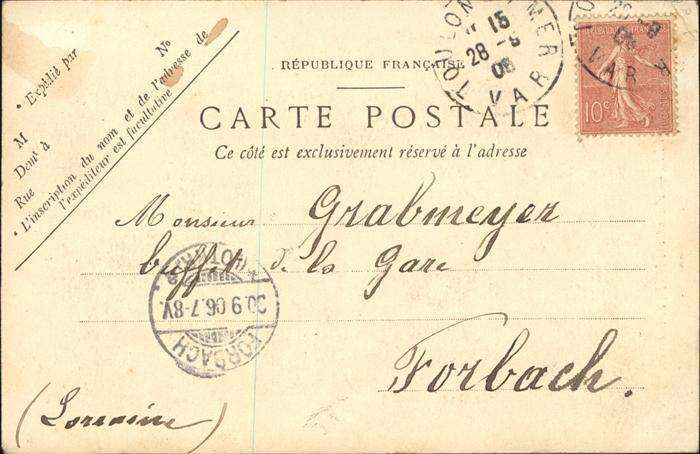 RÉPUBLIQUE FRANÇAISE
CARTE POSTALE
Ce côté est exclusivement réservé à l'adresse
N°
• Expédié par
M
Domt à
Rue
• L'inscription du nom et de l'adresse de
l'expéditeur est facultative
15
28 - 9
06
VAR
VAR
10c
Monsieur Grabmeyer
buffet de la Gare
Forbach.
(Lorraine)
30.9.06.7-8V.
FORBACH